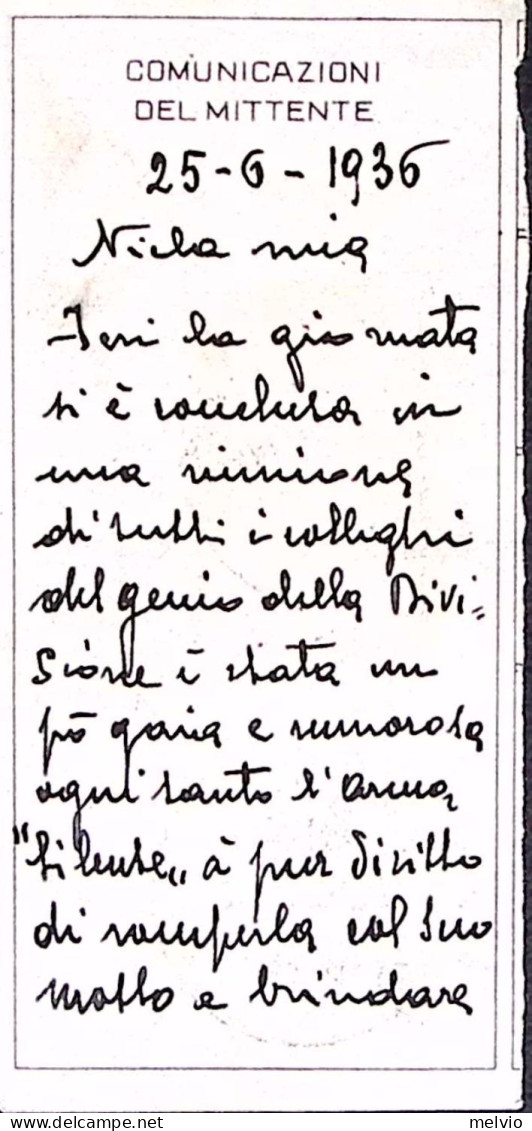 COMUNICAZIONI
DEL MITTENTE
25-6-1936
mia
Ieri la giornata
si è conclusa in
una riunione
di tutti i colleghi
del genio della Divi=
sione è stata un
pò gaia e rumorosa
ogni tanto l'arma
"silente„ à pur diritto
di romperla col suo
motto e brindare
melvio